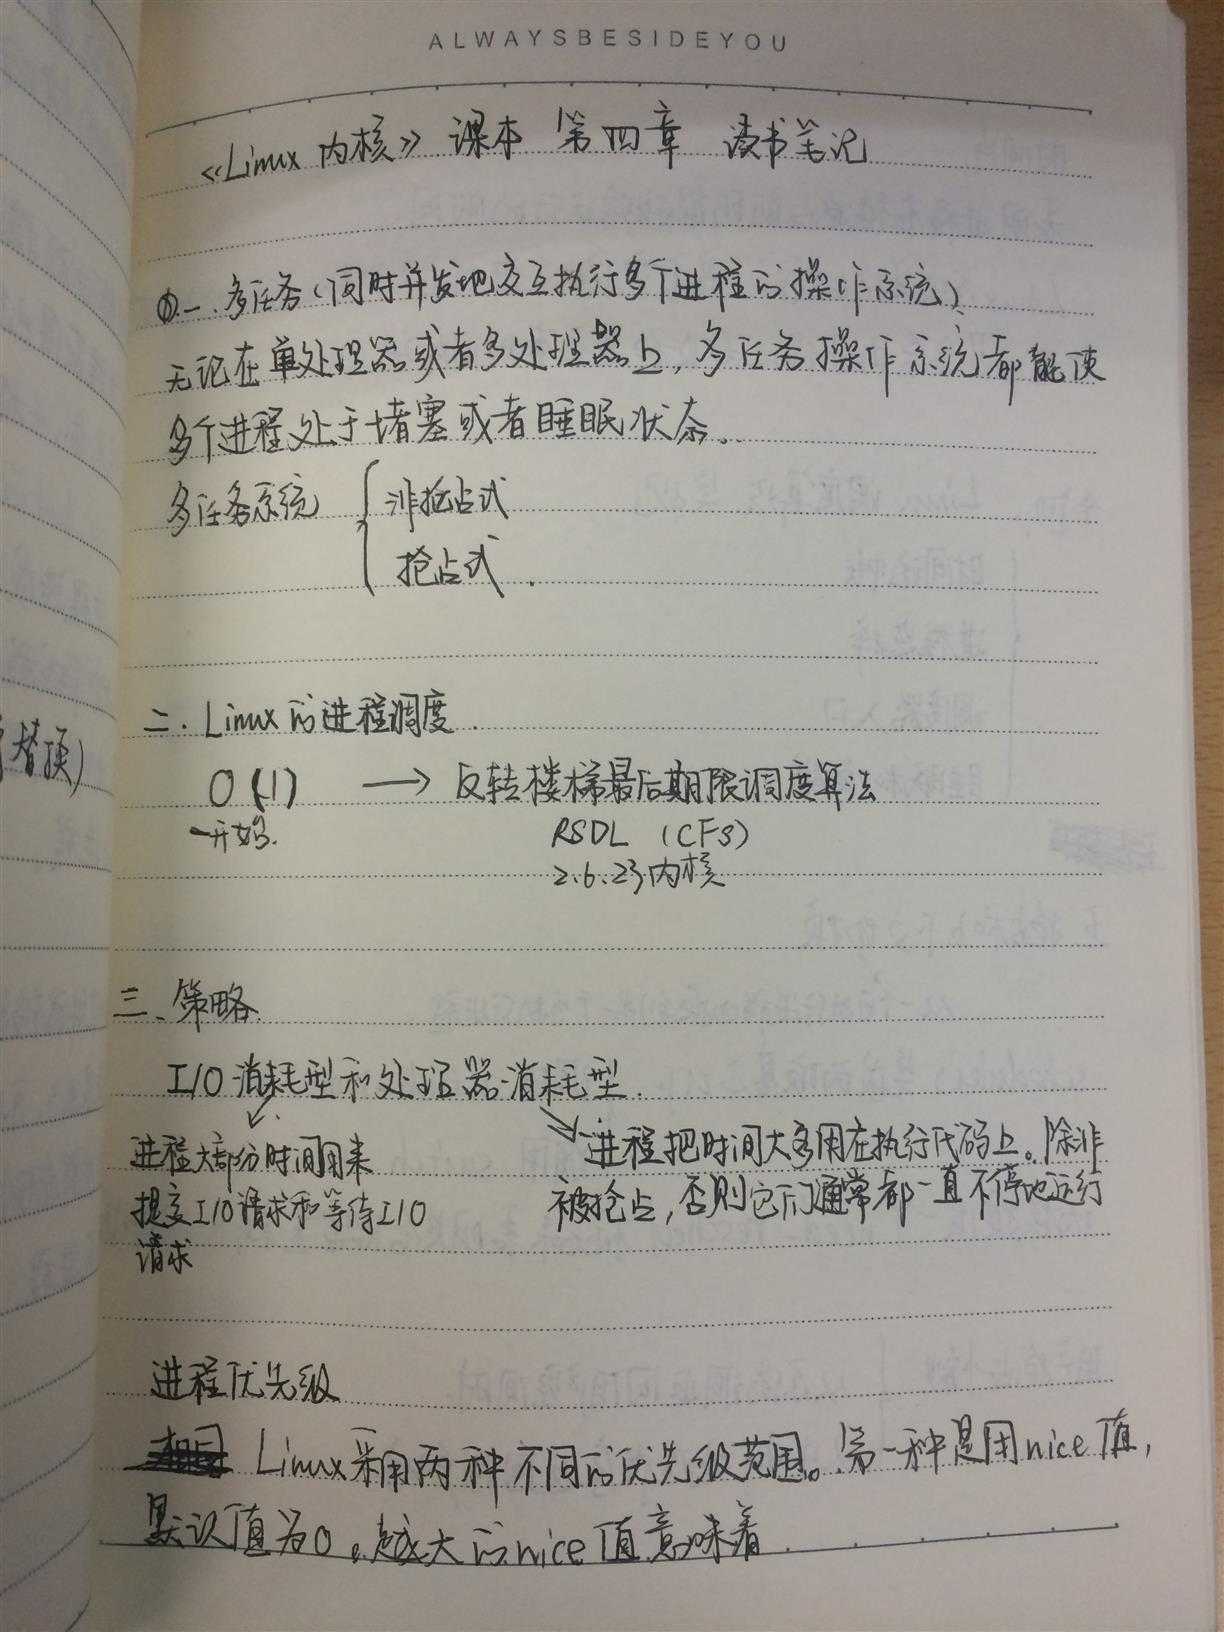 ALWAYSBESIDEYOU
《Linux 内核》 课本 第四章 读书笔记
一.多任务(同时并发地交互执行多个进程的操作系统)
无论在单处理器或者多处理器上,多任务操作系统都能使
多个进程处于堵塞或者睡眠状态。
多任务系统
非抢占式
抢占式.
二. Linux的进程调度.
O(1) → 反转楼梯最后期限调度算法
一开始. RSDL (CFS)
2.6.23内核
三、策略.
I/O消耗型和处理器消耗型.
进程大部分时间用来
提交I/O请求和等待I/O
请求
进程把时间大多用在执行代码上。除非
被抢占,否则它们通常都一直不停地运行
进程优先级
Linux采用两种不同的优先级范围。第一种是用nice值,
默认值为0。越大的nice值意味着
替换)